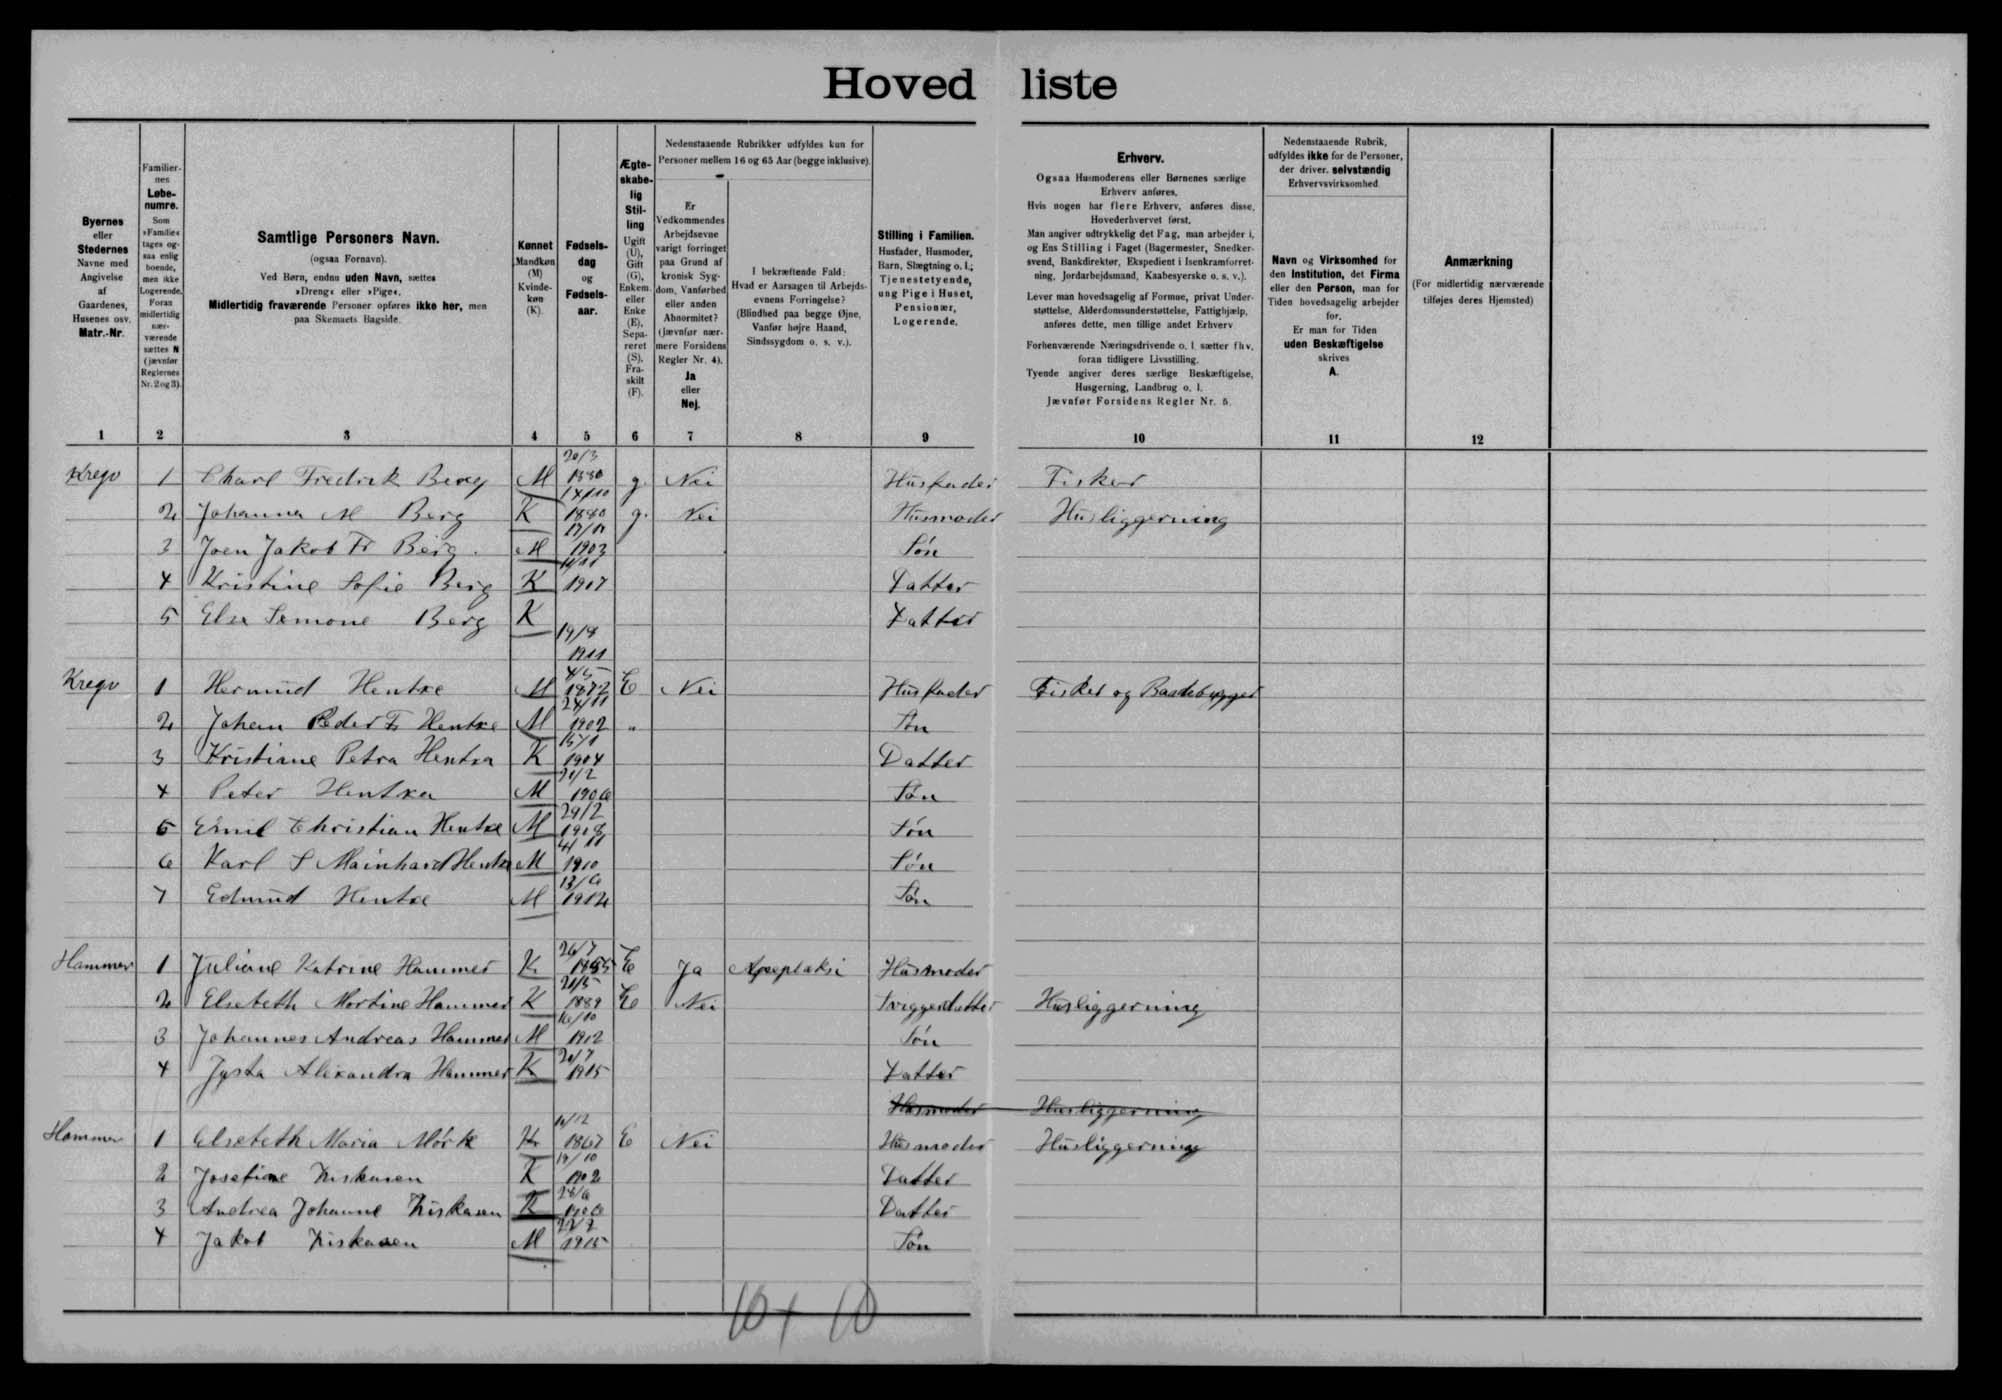 Hovedliste
Byernes eller Stedernes Navne med Angivelse af Gaardenes, Husenes osv. Matr.-Nr.
Familiernes Løbenumre. Som »Familie« tages ogsaa enlig boende, men ikke Logerende. Foran midlertidig nærværende sættes N (jævnfør Reglernes Nr. 2 og 3).
Samtlige Personers Navn.
(ogsaa Fornavn).
Ved Børn, endnu uden Navn, sættes »Dreng« eller »Pige«.
Midlertidig fraværende Personer opføres ikke her, men paa Skemaets Bagside.
Kønnet Mandkøn (M) Kvindekøn (K).
Fødselsdag og Fødselsaar.
Ægteskabelig Stilling Ugift (U), Gift (G), Enkem. eller Enke (E), Separeret (S), Fraskilt (F).
Nedenstaaende Rubrikker udfyldes kun for Personer mellem 16 og 65 Aar (begge inklusive).
Er Vedkommendes Arbejdsevne varigt forringet paa Grund af kronisk Sygdom, Vanførhed eller anden Abnormitet? (Jævnfør nærmere Forsidens Regler Nr. 4). Ja eller Nej.
I bekræftende Fald: Hvad er Aarsagen til Arbejdsevnens Forringelse? (Blindhed paa begge Øjne, Vanfør højre Haand, Sindssygdom o. s. v.).
Stilling i Familien. Husfader, Husmoder, Barn, Slægtning o. l.; Tjenestetyende, ung Pige i Huset, Pensionær, Logerende.
Erhverv.
Ogsaa Husmoderens eller Børnenes særlige Erhverv anføres.
Hvis nogen har flere Erhverv, anføres disse, Hovederhvervet først.
Man angiver udtrykkelig det Fag, man arbejder i, og Ens Stilling i Faget (Bagermester, Snedkersvend, Bankdirektør, Ekspedient i Isenkramforretning, Jordarbejdsmand, Kaabesyerske o. s. v.).
Lever man hovedsagelig af Formue, privat Understøttelse, Alderdomsunderstøttelse, Fattighjælp, anføres dette, men tillige andet Erhverv
Forhenværende Næringsdrivende o. l. sætter fhv. foran tidligere Livsstilling.
Tyende angiver deres særlige Beskæftigelse, Husgerning, Landbrug o. l.
Jævnfør Forsidens Regler Nr. 5.
Nedenstaaende Rubrik, udfyldes ikke for de Personer, der driver selvstændig Erhvervsvirksomhed.
Navn og Virksomhed for den Institution, det Firma eller den Person, man for Tiden hovedsagelig arbejder for.
Er man for Tiden uden Beskæftigelse skrives A.
Anmærkning
(For midlertidig nærværende tilføjes deres Hjemsted)
1 2 3 4 5 6 7 8 9 10 11 12
Kregv 1 Charl Fredrik Berg M 20/3 1880 g. Nei Husfader Fisker
2 Johanna M Berg K 14/10 1880 g. Nei Husmoder Husliggerning
3 Joen Jakob Fr Berg. M 1903 Søn
4 Kristine Sofie Berg K 1907 Datter
5 Else Semone Berg K 19/8 1911 Datter
Kregv 1 Hermud Hentze M 4/5 1872 E Nei Husfader Fisker og Baadebygger
2 Johan Peder Fr Hentze M 24/11 1902 " Søn
3 Kristiane Petra Hentza K 15/1 1904 Datter
4 Peter Hentza M 21/2 1906 Søn
5 Emil Christian Hentze M 29/2 1908 Søn
6 Karl S Mainhard Hentze M 4/11 1910 Søn
7 Edmud Hentze M 13/6 1912 Søn
Hammer 1 Juliane Katrine Hammer K 26/7 1855 E Ja Apeplaksi Husmoder
2 Elsebeth Mortine Hammer K 21/5 1889 E Nei Sviggerdatter Husliggerning
3 Johannes Andreas Hammer M 16/10 1912 Søn
4 Jysta Alexandra Hammer K 20/7 1915 Datter
Husmoder Husliggerning
Hammer 1 Elsebeth Maria Mørk K 11/12 1867 E Nei Husmoder Husliggerning
2 Josefine Ziskasen K 19/10 1902 Datter
3 Andrea Johanne Ziskasen K 28/6 1906 Datter
4 Jakob Ziskasen M 22/2 1915 Søn
10 + 10